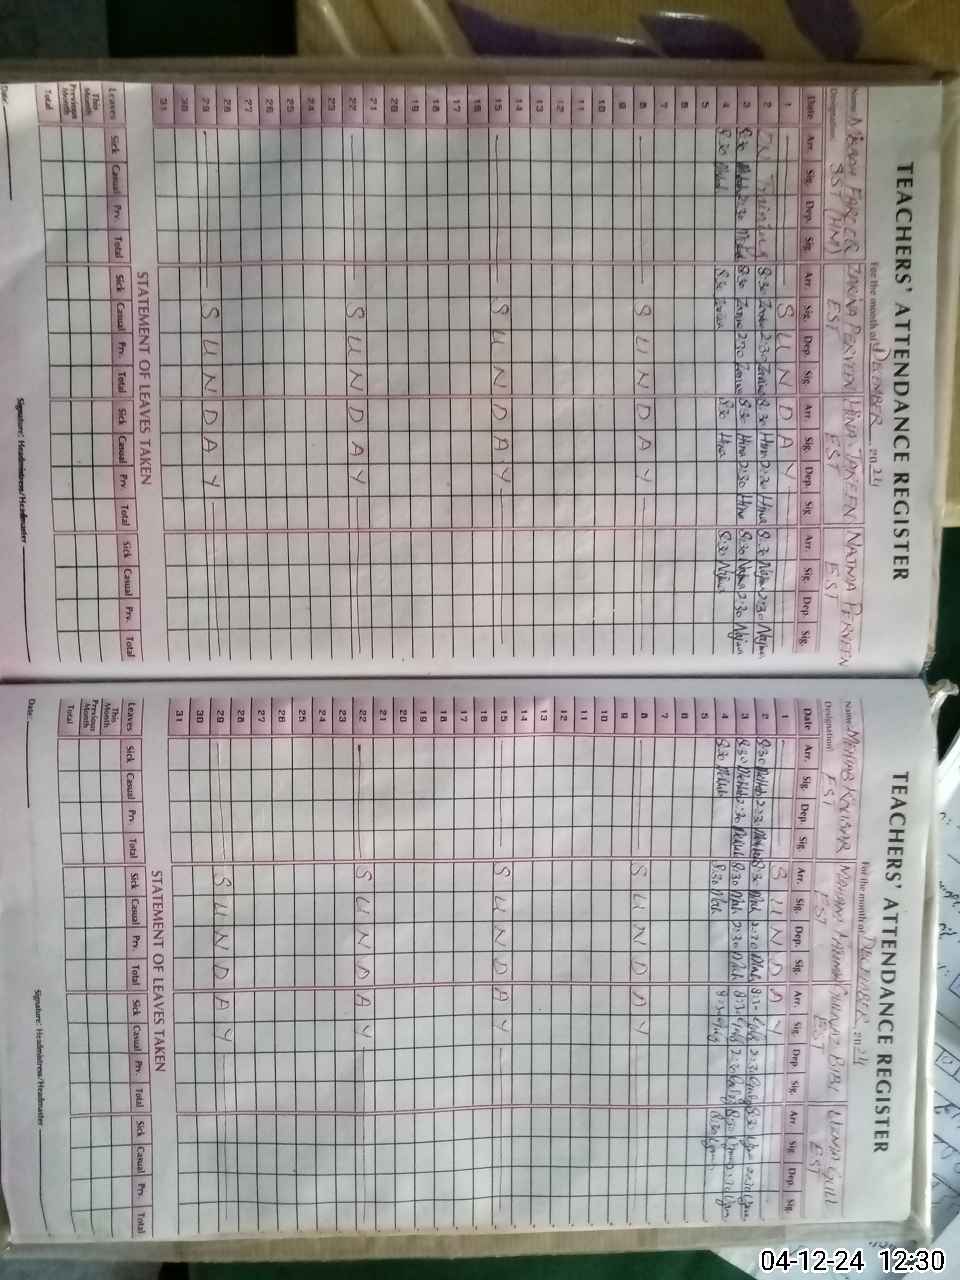 TEACHERS' ATTENDANCE REGISTER
For the month of DECEMBER 2024
Name ZAKINA PERVEEN HINA JAREEN NAJMA PERVEEN
Designation SST (HM) EST EST EST
Date Arr. Sig. Dep. Sig. Arr. Sig. Dep. Sig. Arr. Sig. Dep. Sig. Arr. Sig. Dep. Sig.
1 S U N D A Y
2 ON Training 8:30 2:30 8:30 Hina 2:30 Hina 8:30 Najma 2:30 Najma
3 8:30 2:30 8:30 2:30 8:30 Hina 2:30 Hina 8:30 Najma 2:30 Najma
4 8:30 8:30 8:30 Hina 8:30 Najma
5
6
7
8 S U N D A Y
9
10
11
12
13
14
15 S U N D A Y
16
17
18
19
20
21
22 S U N D A Y
23
24
25
26
27
28
29 S U N D A Y
30
31
STATEMENT OF LEAVES TAKEN
Leaves Sick Casual Prv. Total Sick Casual Prv. Total Sick Casual Prv. Total Sick Casual Prv. Total
This Month
Previous Month
Total
Date:
Signature: Headmistress/Headmaster
TEACHERS' ATTENDANCE REGISTER
For the month of DECEMBER 2024
Name BIBI GILL
Designation EST EST EST EST
Date Arr. Sig. Dep. Sig. Arr. Sig. Dep. Sig. Arr. Sig. Dep. Sig. Arr. Sig. Dep. Sig.
1 S U N D A Y
2 8:30 2:30 8:30 2:30 8:30 2:30 8:30 2:30
3 8:30 2:30 8:30 2:30 8:30 2:30 8:30 2:30
4 8:30 8:30 8:30 8:30
5
6
7
8 S U N D A Y
9
10
11
12
13
14
15 S U N D A Y
16
17
18
19
20
21
22 S U N D A Y
23
24
25
26
27
28
29 S U N D A Y
30
31
STATEMENT OF LEAVES TAKEN
Leaves Sick Casual Prv. Total Sick Casual Prv. Total Sick Casual Prv. Total Sick Casual Prv. Total
This Month
Previous Month
Total
Date:
Signature: Headmistress/Headmaster
04-12-24 12:30